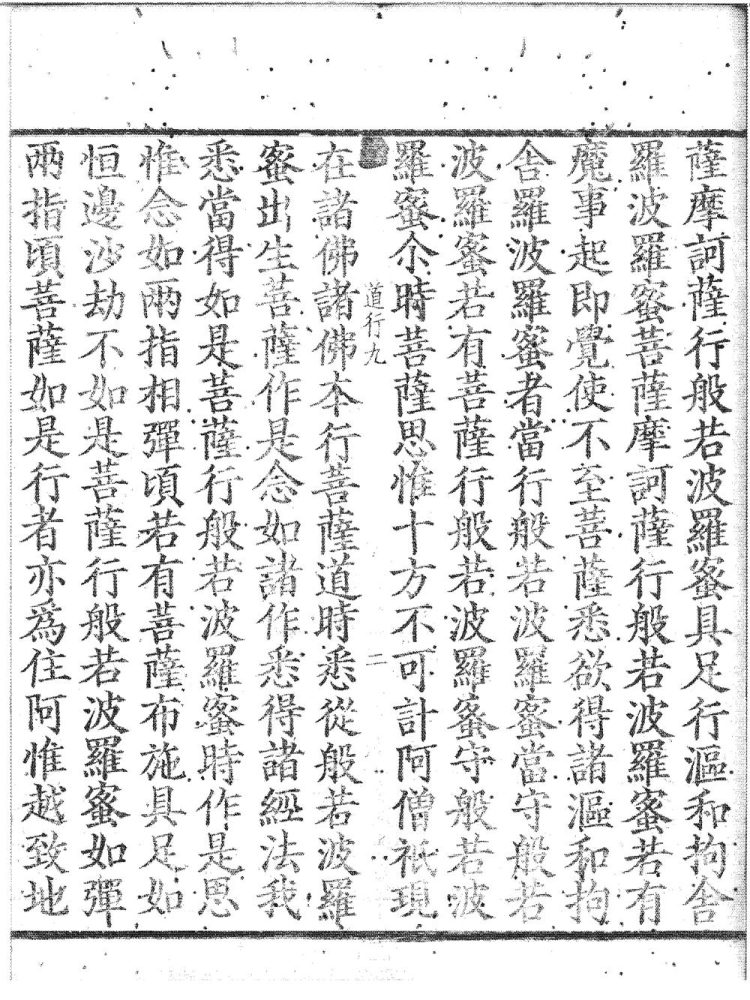 薩摩訶薩行般若波羅蜜具足行漚和拘舍
羅波羅蜜菩薩摩訶薩行般若波羅蜜若有
魔事起即覺使不至菩薩悉欲得諸漚和拘
舍羅波羅蜜者當行般若波羅蜜當守般若
波羅蜜若有菩薩行般若波羅蜜守般若波
羅蜜尒時菩薩思惟十方不可計阿僧祇現
道行九
二
在諸佛諸佛本行菩薩道時悉從般若波羅
蜜出生菩薩作是念如諸作悉得諸經法我
悉當得如是菩薩行般若波羅蜜時作是思
惟念如兩指相彈頃若有菩薩布施具足如
恒邊沙劫不如是菩薩行般若波羅蜜如彈
兩指頃菩薩如是行者亦爲住阿惟越致地